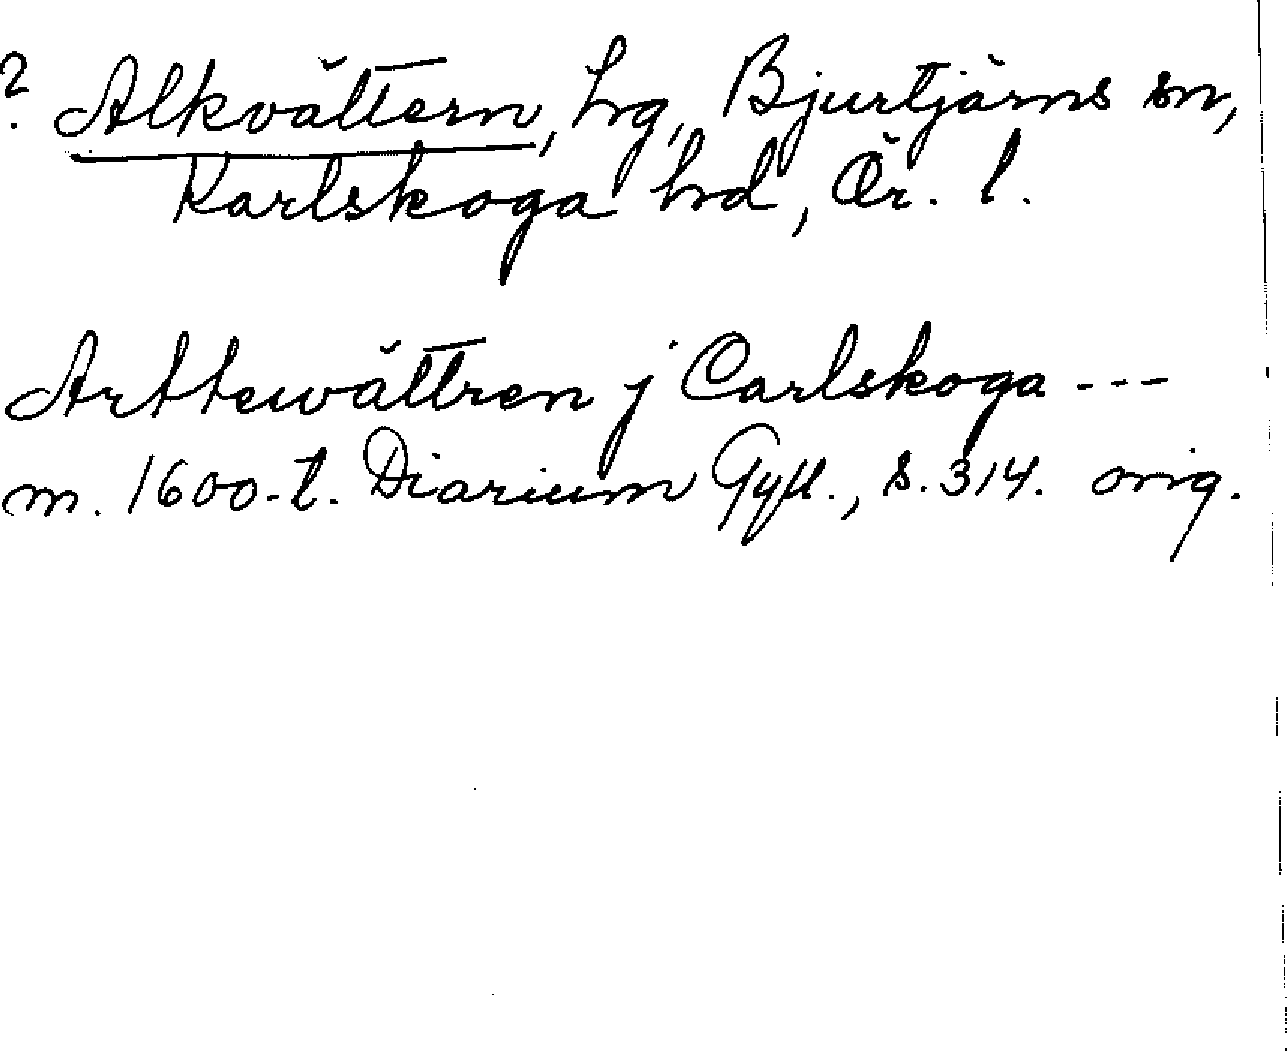 ? Alkvättern, hg, Bjurtjärns sn,
Karlskoga hd, Ör. l.
Arttewättren j Carlskoga ---
m. 1600-t. Diarium Gyll., s. 314. orig.